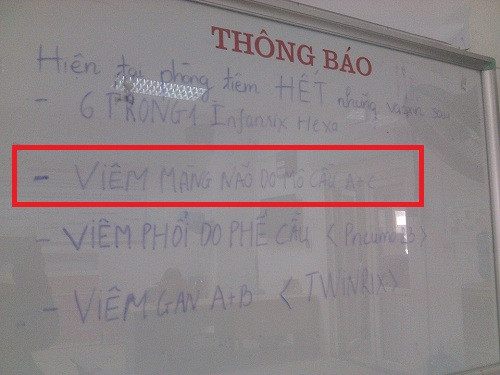 THÔNG BÁO
Hiện tại phòng tiêm HẾT những vacxin sau
- 6 TRONG 1 Infanrix Hexa
- VIÊM MÀNG NÃO DO MÔ CẦU A+C
- VIÊM PHỔI DO PHẾ CẦU <Pneumo23>
- VIÊM GAN A+B <TWINRIX>